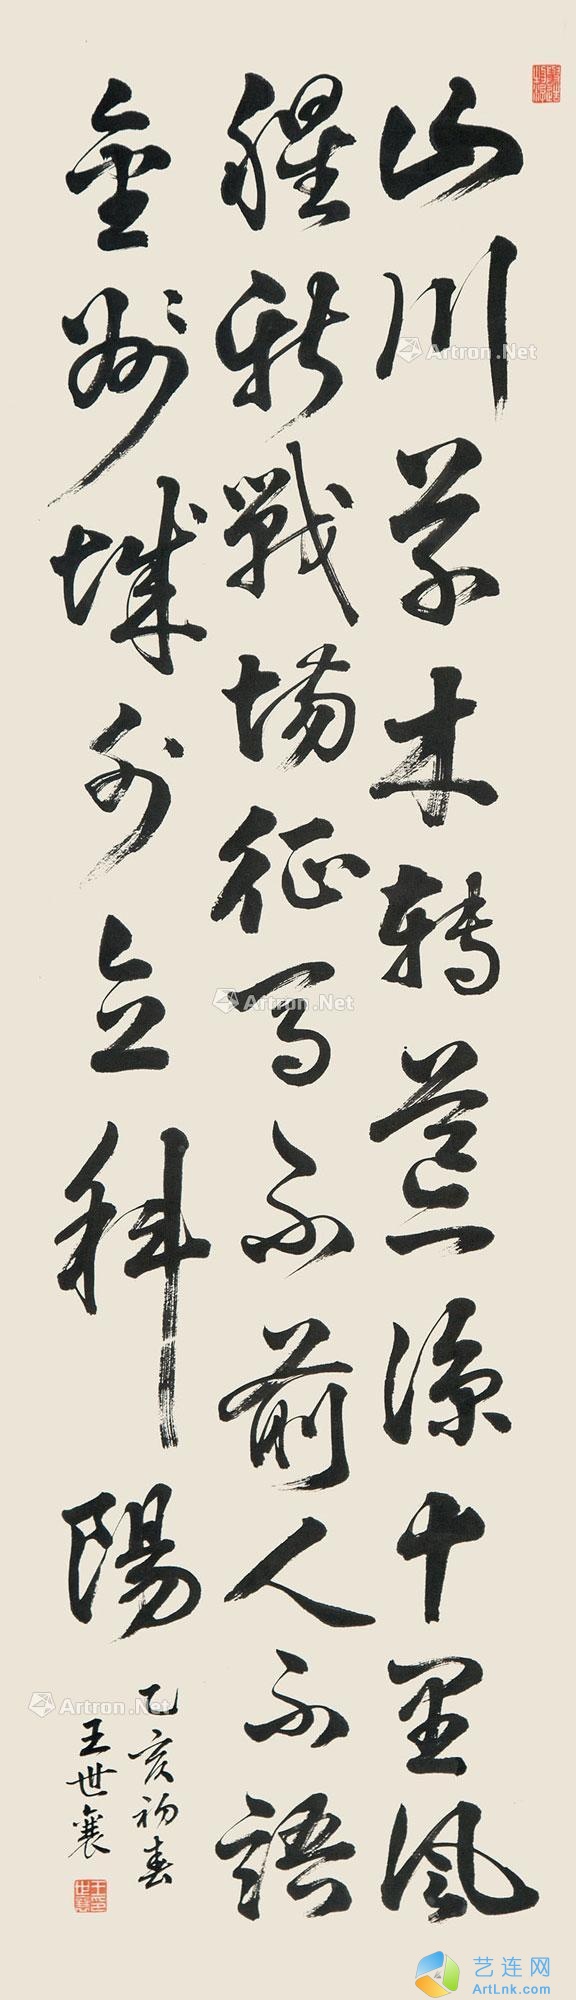 山川草木轉荒涼十里風
腥新戰場征馬不前人不語
金州城外立斜陽
乙亥初春
王世襄
Artron.Net
Artron.Net
Artron.Net
艺连网
ArtLnk.com